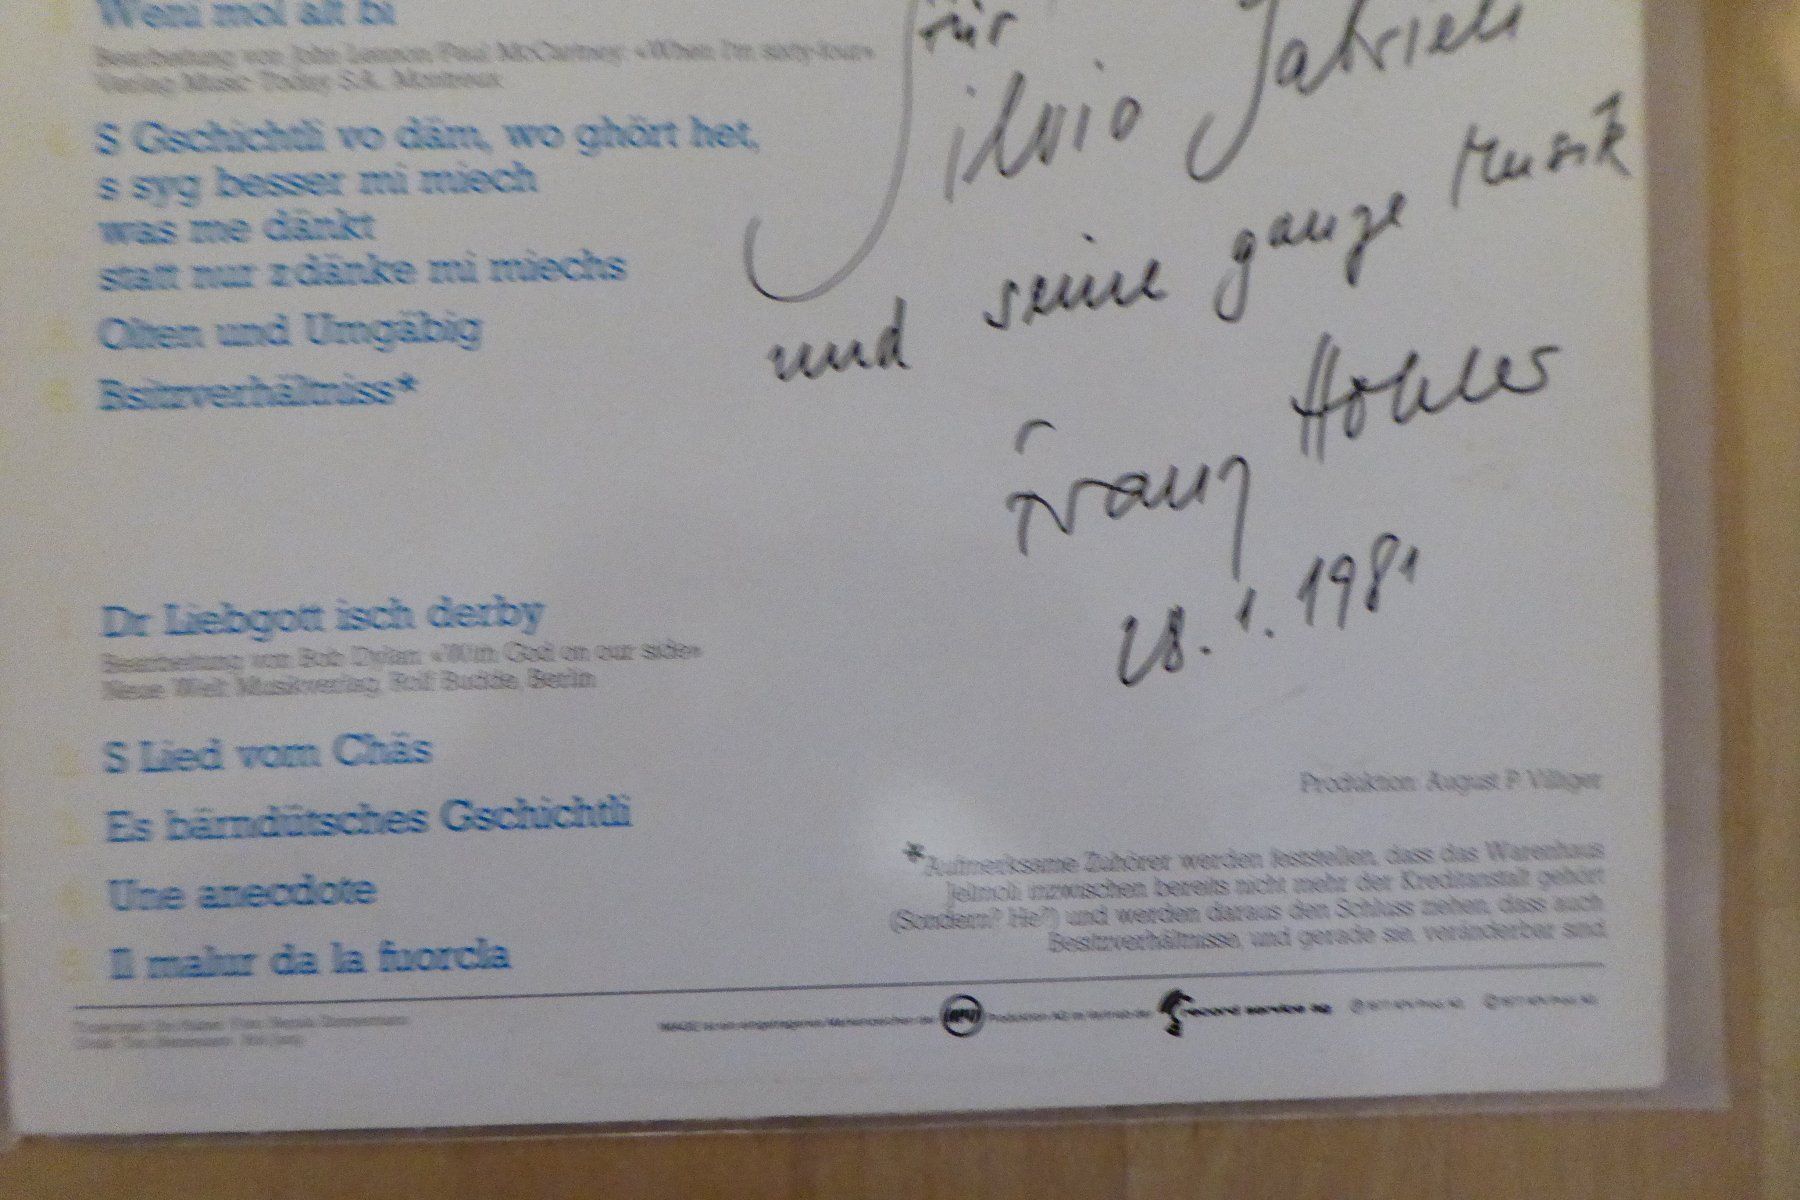 Weni mol alt bi
Bearbeitung von John Lennon/Paul McCartney: «When I'm sixty-four»
Verlag Music Today S.A. Montreux
S Gschichtli vo däm, wo ghört het,
s syg besser mi miech
was me dänkt
statt nur z dänke mi miechs
Olten und Umgäbig
Bsitzverhältniss*
Dr Liebgott isch derby
Bearbeitung von Bob Dylan: «With God on our side»
Neue Welt Musikverlag, Rolf Budde, Berlin
S Lied vom Chäs
Es bärndütsches Gschichtli
Une anecdote
Il malur da la fuorcla
für
Silvio Gabriele
und seine ganze Musik
Franz Hohler
28.1.1981
Produktion: August P. Villiger
*Aufmerksame Zuhörer werden feststellen, dass das Warenhaus
Jelmoli inzwischen bereits nicht mehr der Kreditanstalt gehört
(Sondern? He?) und werden daraus den Schluss ziehen, dass auch
Besitzverhältnisse, und gerade sie, veränderbar sind.
record service ag